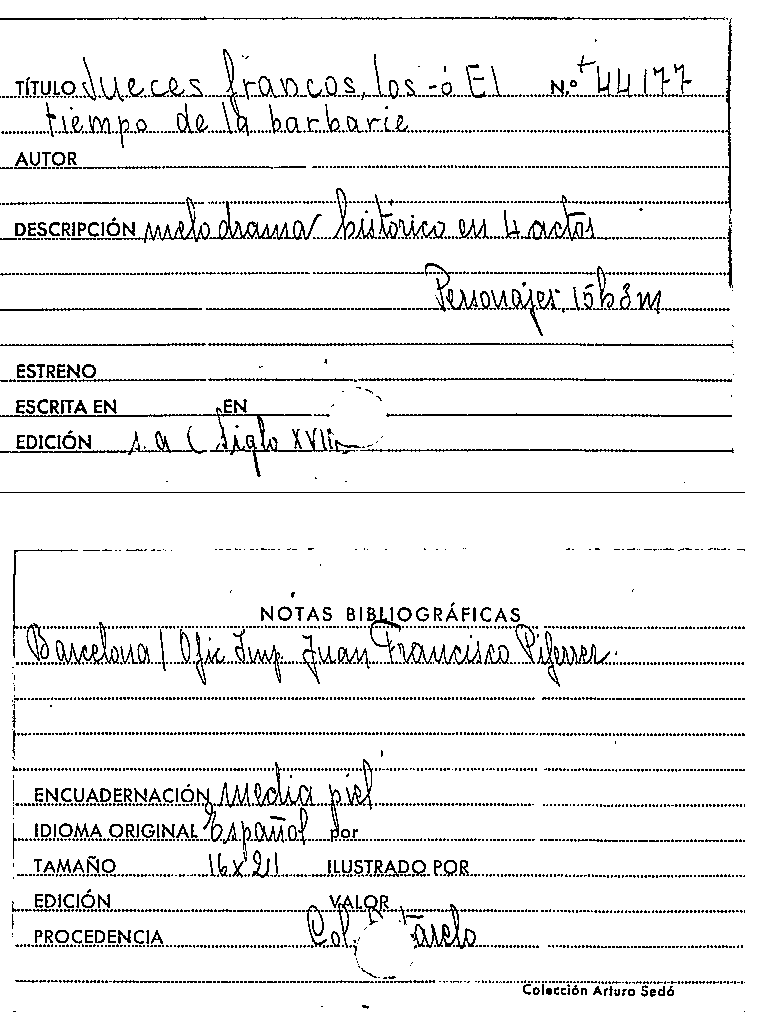 TÍTULO Jueces francos, los -ó El N.º 44177
tiempo de la barbarie
AUTOR
DESCRIPCIÓN melodrama histórico en 4 actos
Personajes. 15h 3m
ESTRENO
ESCRITA EN EN
EDICIÓN s. a ( Siglo XVIII
NOTAS BIBLIOGRÁFICAS
Barcelona / Ofic Imp. Juan Francisco Piferrer.
ENCUADERNACIÓN media piel
IDIOMA ORIGINAL Español por
TAMAÑO 16x211 ILUSTRADO POR
EDICIÓN VALOR
PROCEDENCIA Col.
Colección Arturo Sedó